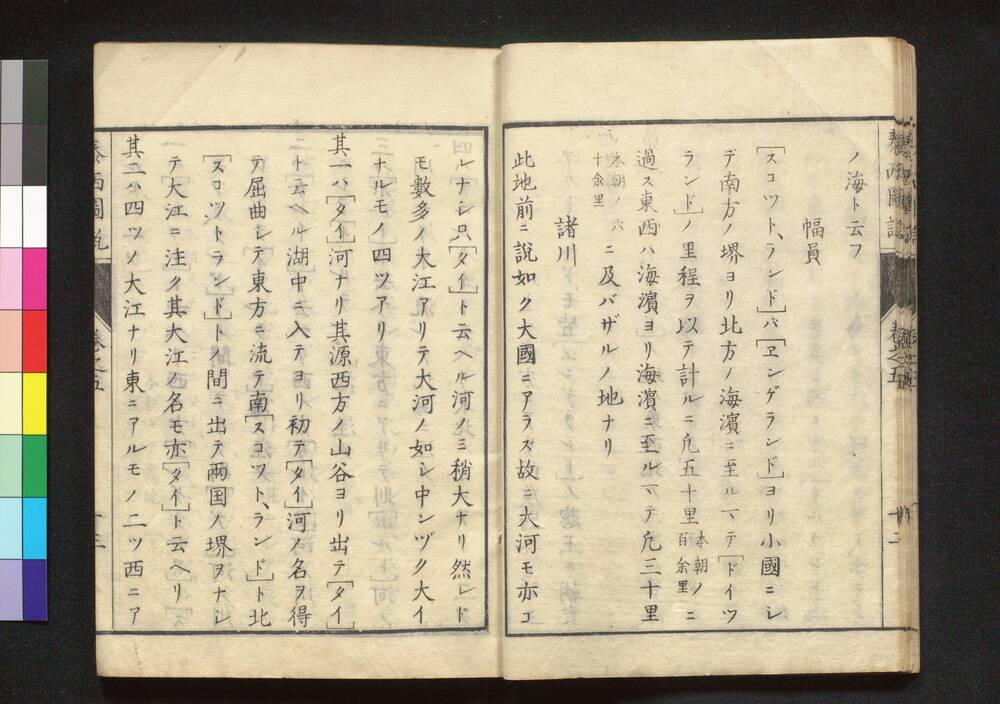 ノ海ト云フ
幅員
[スコツト、ランド]ハ[エンゲランド]ヨリ小國ニシ
デ南方ノ堺ヨリ北方ノ海濱ニ至ルマテ[ドイツ
ランド]ノ里程ヲ以テ計ルニ凢五十里本朝ノ百余里ニ
過ス東西ハ海濱ヨリ海濱ニ至ルマテ凢三十里
本朝ノ六十余里ニ及バザルノ地ナリ
諸川
此地前ニ説如ク大國ニアラズ故ニ大河モ亦コ
レナシ只[タイ]ト云ヘル河ノミ稍大ナリ然レド
モ數多ノ大江アリテ大河ノ如シ中ンヅク大イ
ナルモノ四ツアリ
其一ハ[タイ]河ナリ其源西方ノ山谷ヨリ出テ[タイ]
ト云ヘル湖中ニ入テヨリ初テ[タイ]河ノ名ヲ得
テ屈曲シテ東方ニ流テ南[スコツト、ランド]ト北
[スコツトランド]トノ間ニ出テ両国ノ堺ヲナシ
テ大江ニ注ク其大江ノ名モ亦[タイ]ト云ヘリ
其二ハ四ツノ大江ナリ東ニアルモノ二ツ西ニア
泰西圖説
卷之五
十三